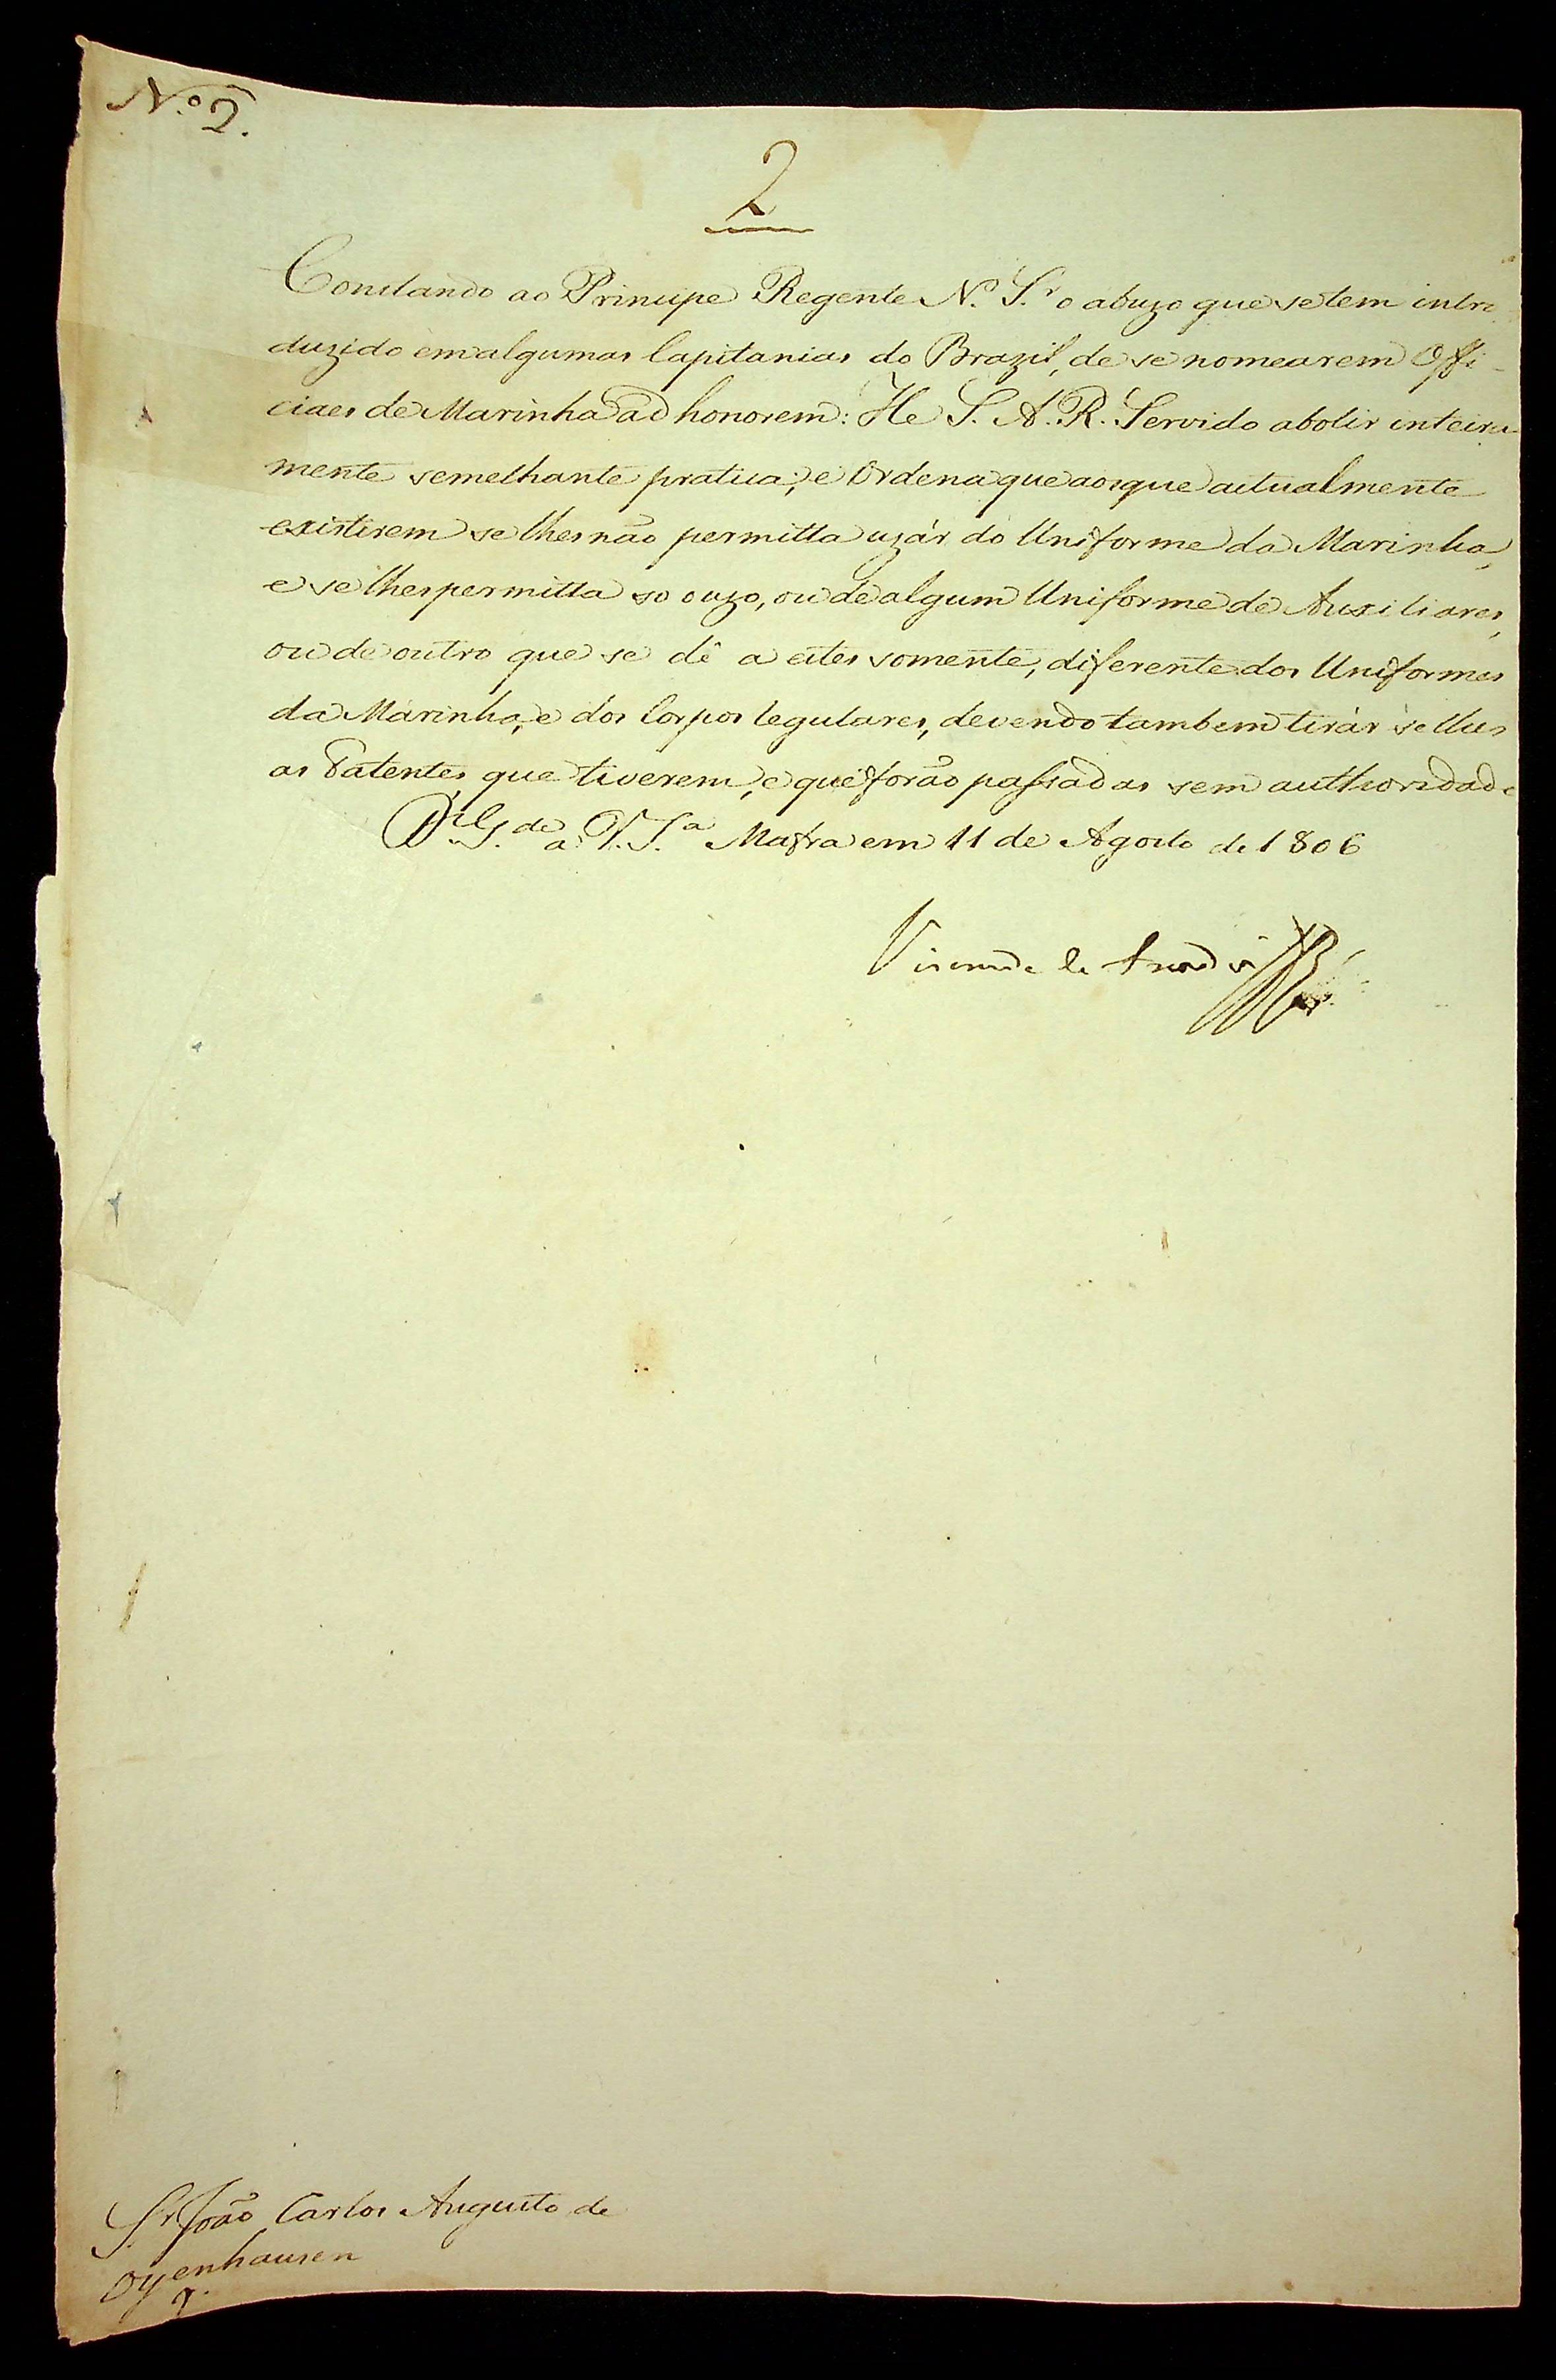 N.º 2.
2
Constando ao Principe Regente N. S.r o abuzo que se tem intro
duzido em algumas Capitanias do Brazil, de se nomearem Offi-
ciaes de Marinha ad honorem: He S. A. R. Servido abolir inteira
mente semelhante pratica; e Ordena que aos que actualmente
existirem se lhes não permitta uzár do Uniforme da Marinha,
e se lhes permitta so o uzo, ou de algum Uniforme de Auxiliares,
ou de outro que se dê a estes somente, diferente dos Uniformes
da Marinha, e dos Corpos regulares, devendo tambem tirár se lhes
as Patentes que tiverem, e que forão passadas sem authoridade
D.s G.de a V. S.a Mafra em 11 de Agosto de 1806
Visconde de Anadia
S.r João Carlos Augusto de
Oyenhausen